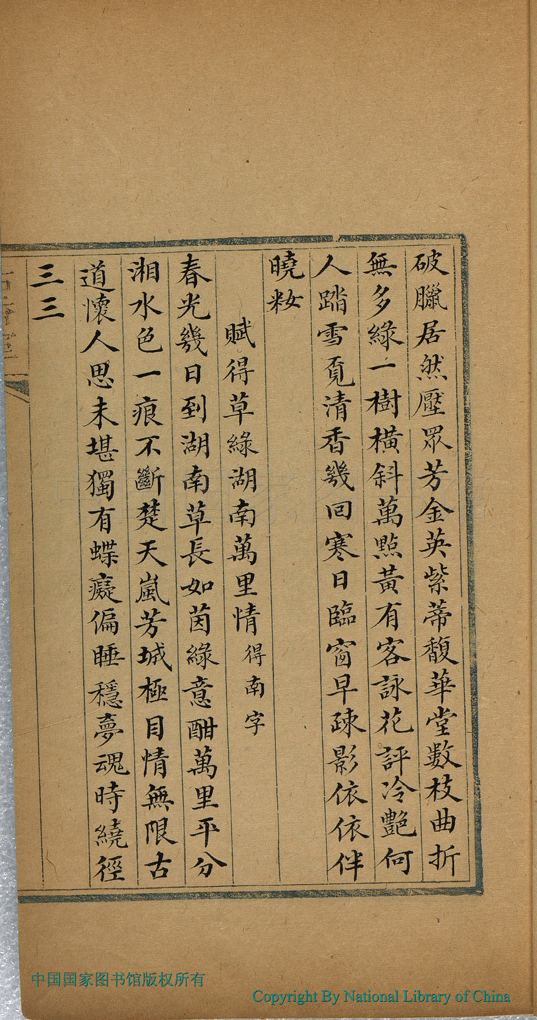 破臘居然壓眾芳金英紫蒂馥華堂數枝曲折
無多綠一樹橫斜萬點黃有客詠花評冷艷何
人踏雪覔清香幾回寒日臨窗早疎影依依伴
曉妝
賦得草綠湖南萬里情得南字
春光幾日到湖南草長如茵綠意酣萬里平分
湘水色一痕不斷楚天嵐芳城極目情無限古
道懷人思未堪獨有蝶癡偏睡穩夢魂時繞徑
三三
中国国家图书馆版权所有
Copyright By National Library of China